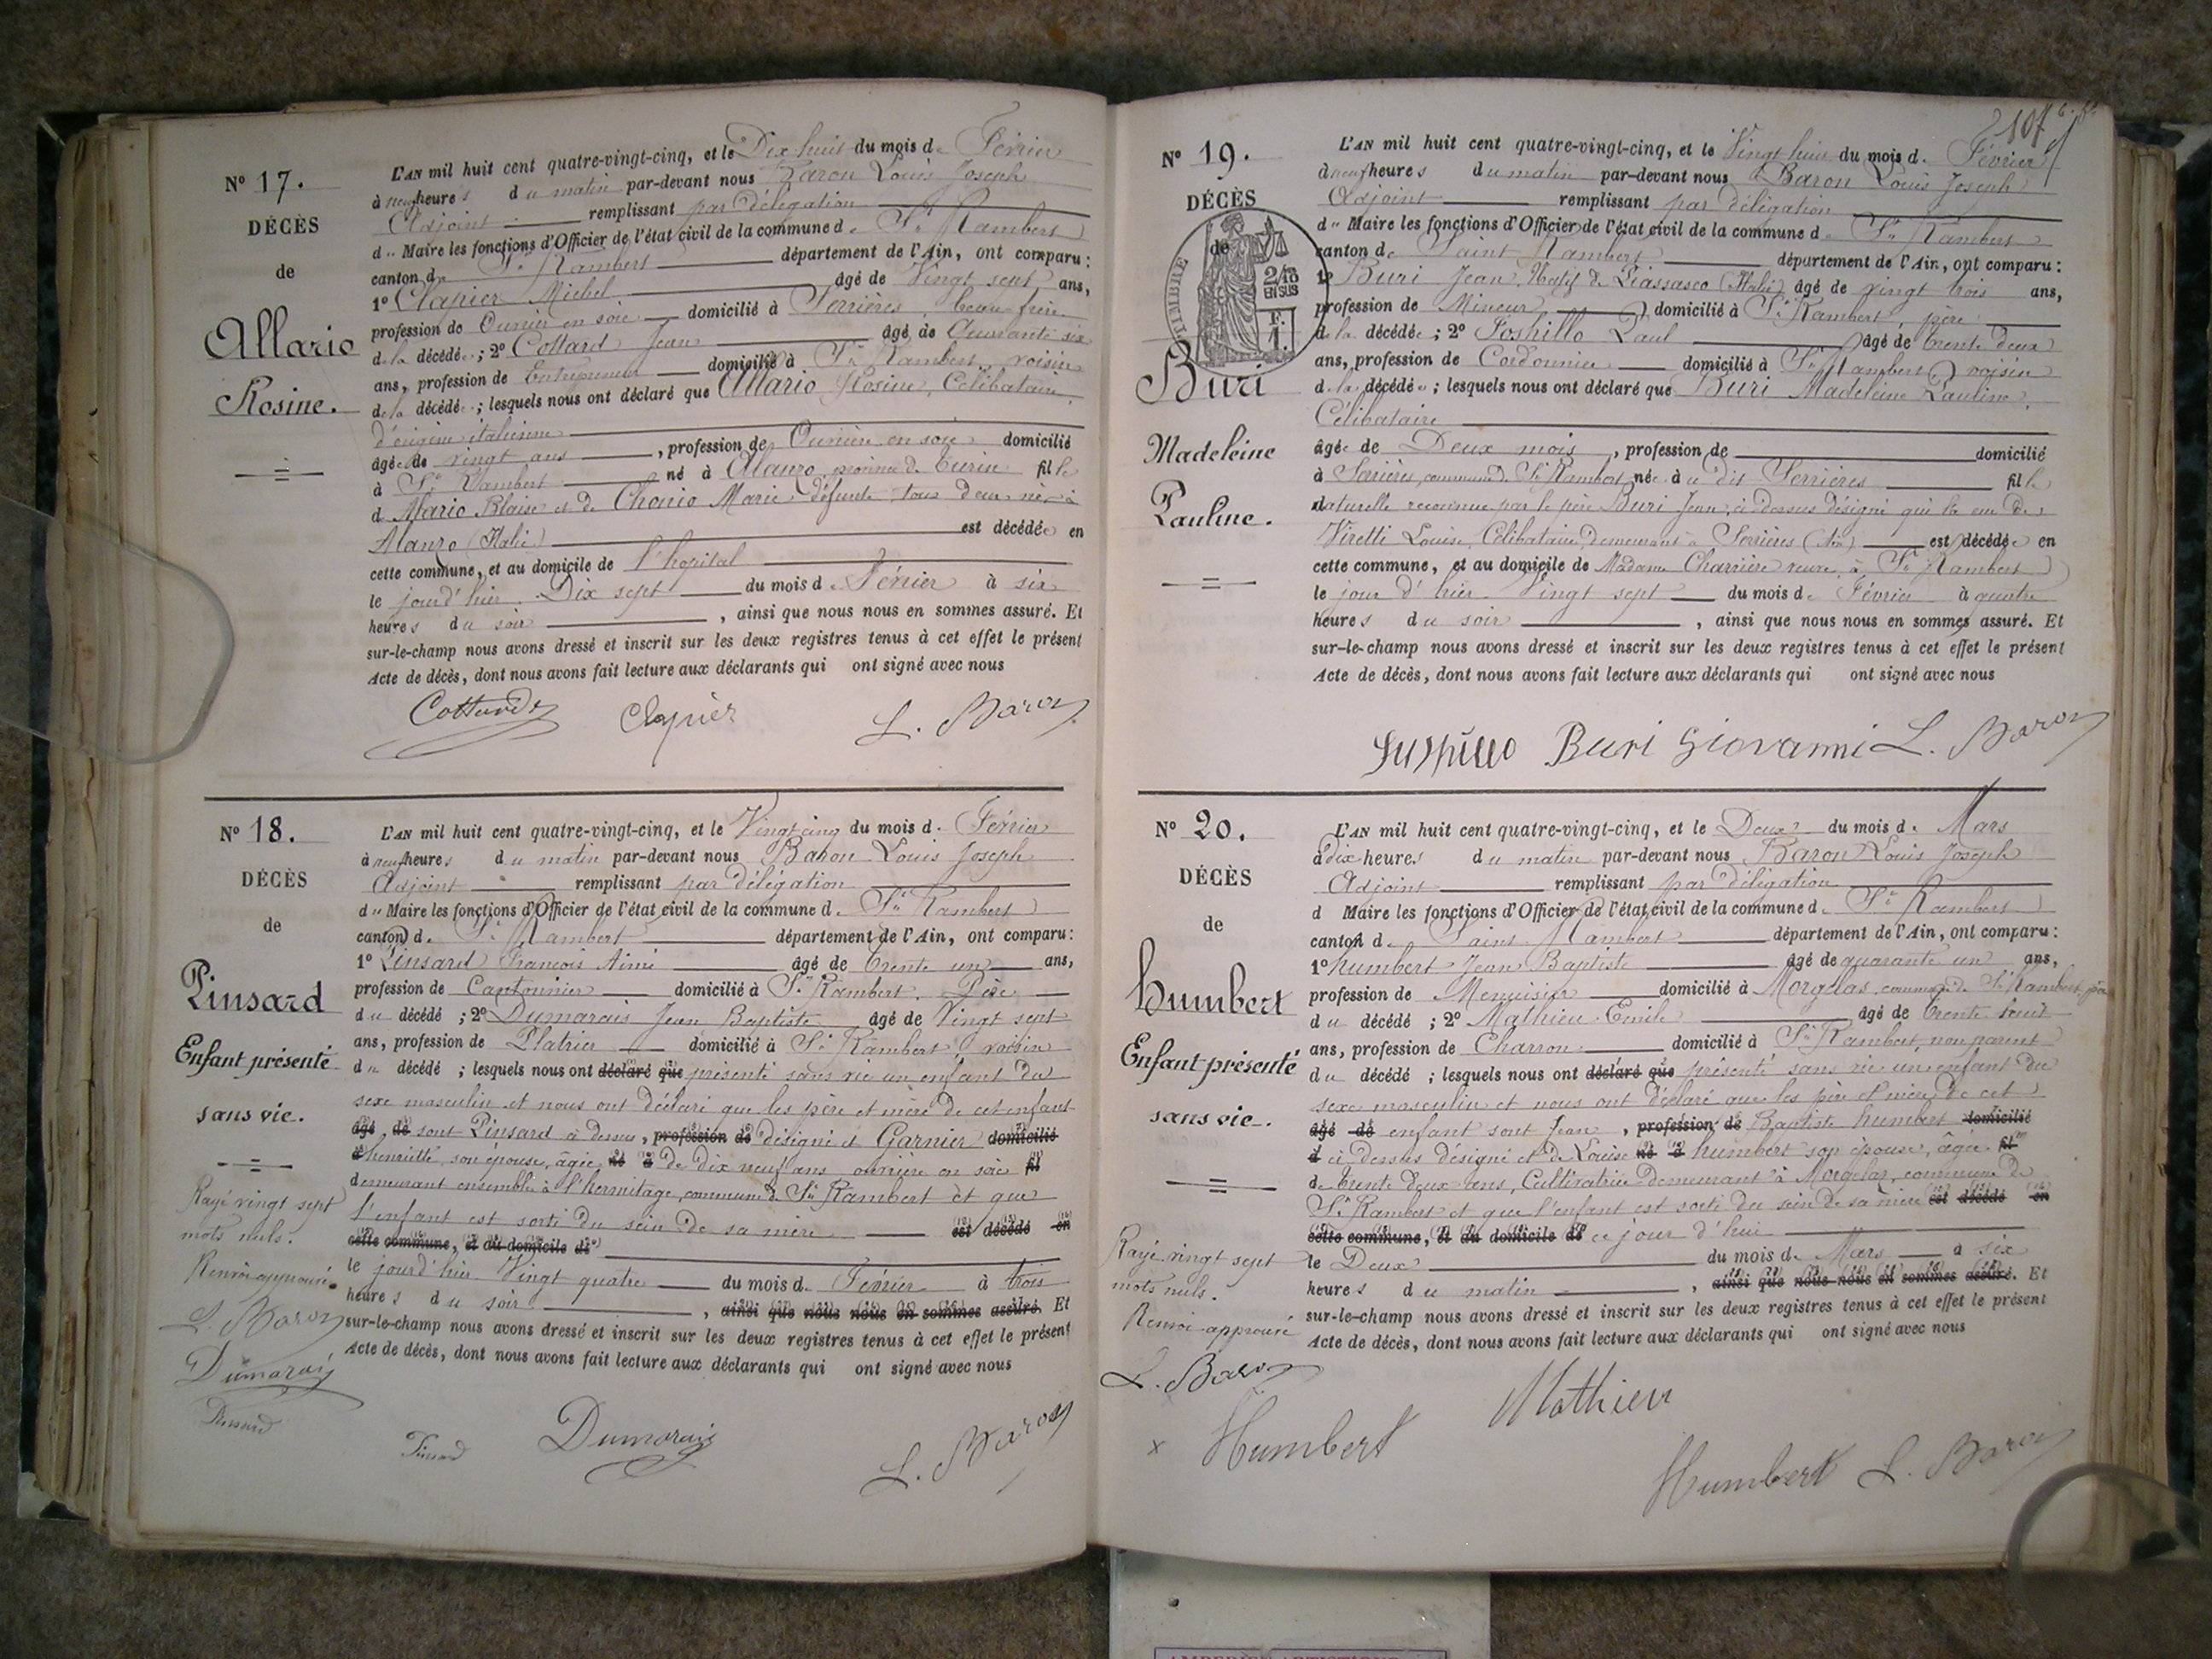 N° 17.
DÉCÈS
de
Allario
Rosine.
L'AN mil huit cent quatre-vingt-cinq, et le Dix huit du mois de Février
à neuf heures du matin par-devant nous Baron Louis Joseph
Adjoint remplissant par délégation
du Maire les fonctions d'Officier de l'état civil de la commune de St Rambert
canton de St Rambert département de l'Ain, ont comparu :
1° Clapier Michel âgé de Vingt sept ans,
profession de Ouvrier en soie domicilié à Serrières, beau frère
de la décédée ; 2° Cottard Jean âgé de Quarante six
ans, profession de Entrepreneur domicilié à St Rambert, voisin
de la décédée ; lesquels nous ont déclaré que Allario Rosine, Célibataire,
d'origine italienne
âgée de vingt ans , profession de Ouvrière en soie domicilié
à St Rambert né à Alanzo province de Turin fille
d Alario Blaise et de Chonio Marie défunte, tous deux nés à
Alanzo (Italie) est décédée en
cette commune, et au domicile de l'hopital
le jour d'hier Dix sept du mois de Février à six
heures du soir , ainsi que nous nous en sommes assuré. Et
sur-le-champ nous avons dressé et inscrit sur les deux registres tenus à cet effet le présent
Acte de décès, dont nous avons fait lecture aux déclarants qui ont signé avec nous
Clapier L. Baron
N° 18.
DÉCÈS
de
Pinsard
Enfant présenté
sans vie.
Rayé vingt sept
mots nuls.
Renvoi approuvé.
L. Baron
Dumarais
Pinsard
L'AN mil huit cent quatre-vingt-cinq, et le Vingt cinq du mois de Février
à neuf heures du matin par-devant nous Baron Louis Joseph
Adjoint remplissant par délégation
du Maire les fonctions d'Officier de l'état civil de la commune de St Rambert
canton de St Rambert département de l'Ain, ont comparu :
1° Pinsard François Aimé âgé de trente un ans,
profession de Cantonnier domicilié à St Rambert. Père
du décédé ; 2° Dumarais Jean Baptiste âgé de Vingt sept
ans, profession de Platrier domicilié à St Rambert, voisin
du décédé ; lesquels nous ont déclaré que présenté sans vie un enfant du
sexe masculin et nous ont déclaré que les père et mère de cet enfant
âgé de sont Pinsard ci dessus, profession de désigné et Garnier domicilié
à henriette, son épouse, âgée né à de dix neuf ans, ouvrière en soie fil
demeurant ensemble à l'hermitage, commune de St Rambert et que
l'enfant est sorti du sein de sa mère est décédé en
cette commune, et au domicile de
le jour d'hier Vingt quatre du mois de Février à trois
heures du soir , ainsi que nous nous en sommes assuré. Et
sur-le-champ nous avons dressé et inscrit sur les deux registres tenus à cet effet le présent
Acte de décès, dont nous avons fait lecture aux déclarants qui ont signé avec nous
Pinsard Dumarais L. Baron
107
N° 19.
DÉCÈS
de
TIMBRE
2/10
EN SUS
Buri
Madeleine
Pauline.
L'AN mil huit cent quatre-vingt-cinq, et le Vingt huit du mois de Février
à neuf heures du matin par-devant nous Baron Louis Joseph
Adjoint remplissant par délégation
du Maire les fonctions d'Officier de l'état civil de la commune de St Rambert
canton de Saint Rambert département de l'Ain, ont comparu :
1° Buri Jean, Natif de Piassasco (Italie) âgé de vingt trois ans,
profession de Mineur domicilié à St Rambert, père
de la décédée ; 2° Foshillo Paul âgé de trente deux
ans, profession de Cordonnier domicilié à St Rambert, voisin
de la décédée ; lesquels nous ont déclaré que Buri Madeleine Pauline,
Célibataire
âgée de Deux mois , profession de domicilié
à Serrières, commune de St Rambert née à u dit Serrières fille
naturelle reconnue par le père Buri Jean, ci dessus désigné qui l'a eu de
Viretti Louise, Célibataire, demeurant à Serrières (Ain) est décédée en
cette commune, et au domicile de Madame Charrière veuve, à St Rambert
le jour d'hier Vingt sept du mois de Février à quatre
heures du soir , ainsi que nous nous en sommes assuré. Et
sur-le-champ nous avons dressé et inscrit sur les deux registres tenus à cet effet le présent
Acte de décès, dont nous avons fait lecture aux déclarants qui ont signé avec nous
Buri Giovanni L. Baron
N° 20.
DÉCÈS
de
humbert
Enfant présenté
sans vie.
Rayé vingt sept
mots nuls.
Renvoi approuvé
L. Baron
x Humbert
L'AN mil huit cent quatre-vingt-cinq, et le Deux du mois de Mars
à dix heures du matin par-devant nous Baron Louis Joseph
Adjoint remplissant par délégation
d Maire les fonctions d'Officier de l'état civil de la commune de St Rambert
canton de Saint Rambert département de l'Ain, ont comparu :
1° humbert Jean Baptiste âgé de quarante un ans,
profession de Menuisier domicilié à Morgelas, commune de St Rambert, père
du décédé ; 2° Mathieu Emile âgé de trente huit
ans, profession de Charron domicilié à St Rambert, non parent
du décédé ; lesquels nous ont déclaré que présenté sans vie un enfant du
sexe masculin et nous ont déclaré que les père et mère de cet
âgé de enfant sont Jean , profession de Baptiste humbert domicilié
à ci dessus désigné et de Louise né à humbert son épouse, âgée fil
de trente deux ans, Cultivatrice demeurant à Morgelas, commune de
St Rambert et que l'enfant est sorti du sein de sa mère est décédé en
cette commune, et au domicile de ce jour d'hui
le Deux du mois de Mars à six
heures du matin , ainsi que nous nous en sommes assuré. Et
sur-le-champ nous avons dressé et inscrit sur les deux registres tenus à cet effet le présent
Acte de décès, dont nous avons fait lecture aux déclarants qui ont signé avec nous
Mathieu
Humbert L. Baron